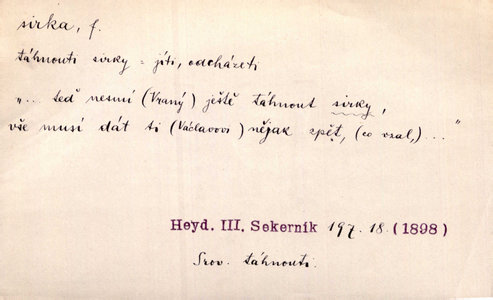 sirka, f.
táhnouti sirky = jíti, odcházeti
„... teď nesmí (Vraný) ještě táhnout sirky,
vše musí dát ti (Václavovi) nějak zpět, (co vzal,)..."
Heyd. III. Sekerník 197. 18. (1898)
Srov. táhnouti.